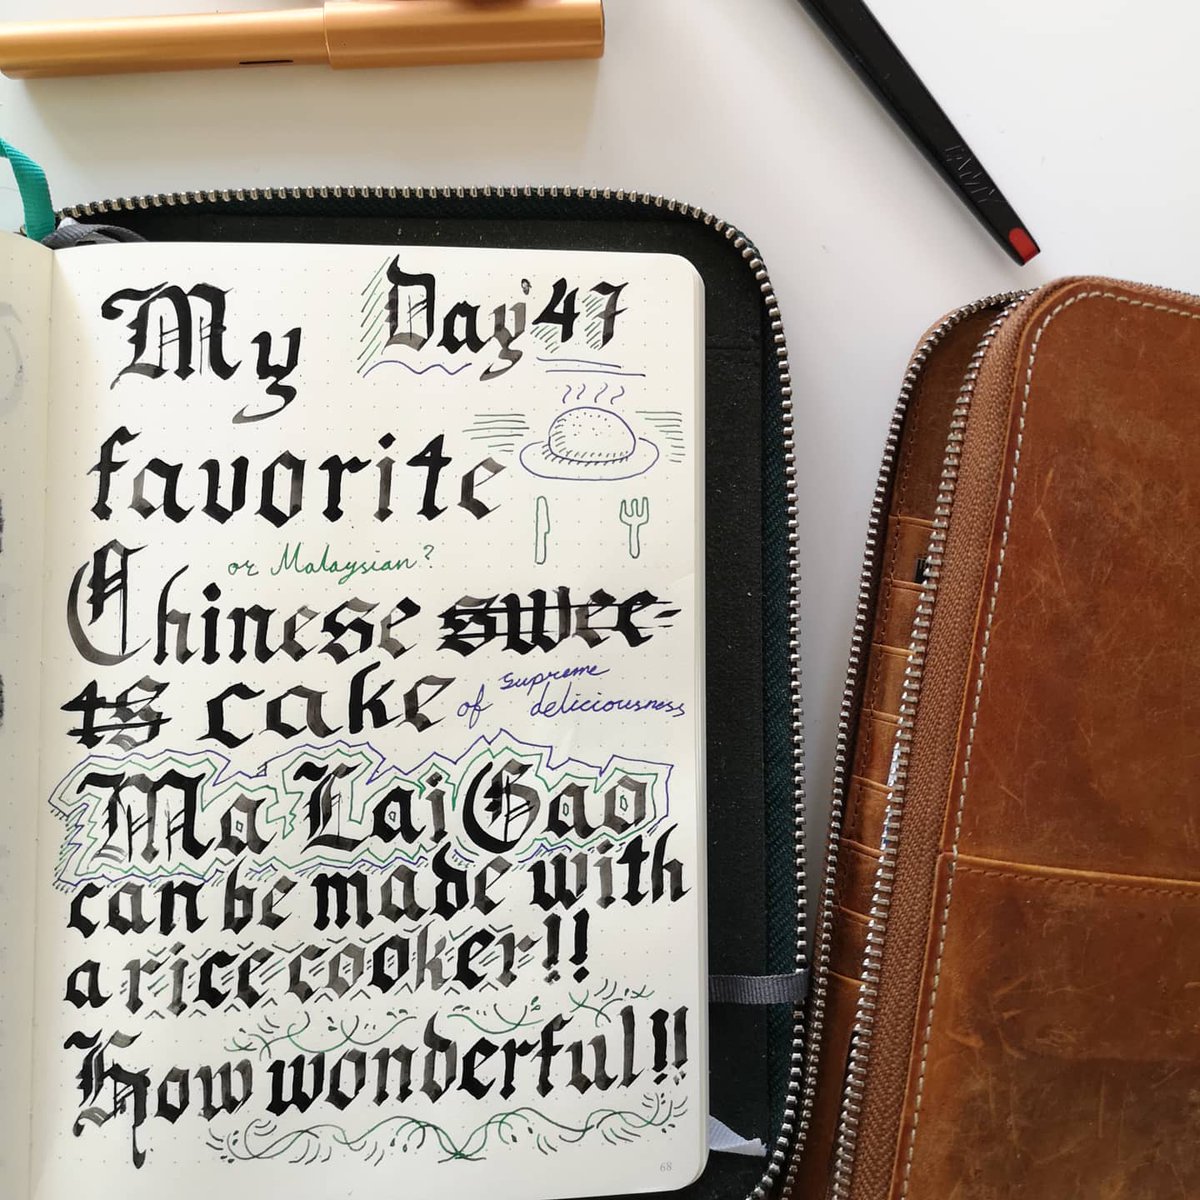 My
Day 47
favorite
or Malaysian?
Chinese swee-
ts cake
of supreme
deliciousness
Ma Lai Gao
can be made with
a rice cooker!!
How wonderful!!
68
LAMY